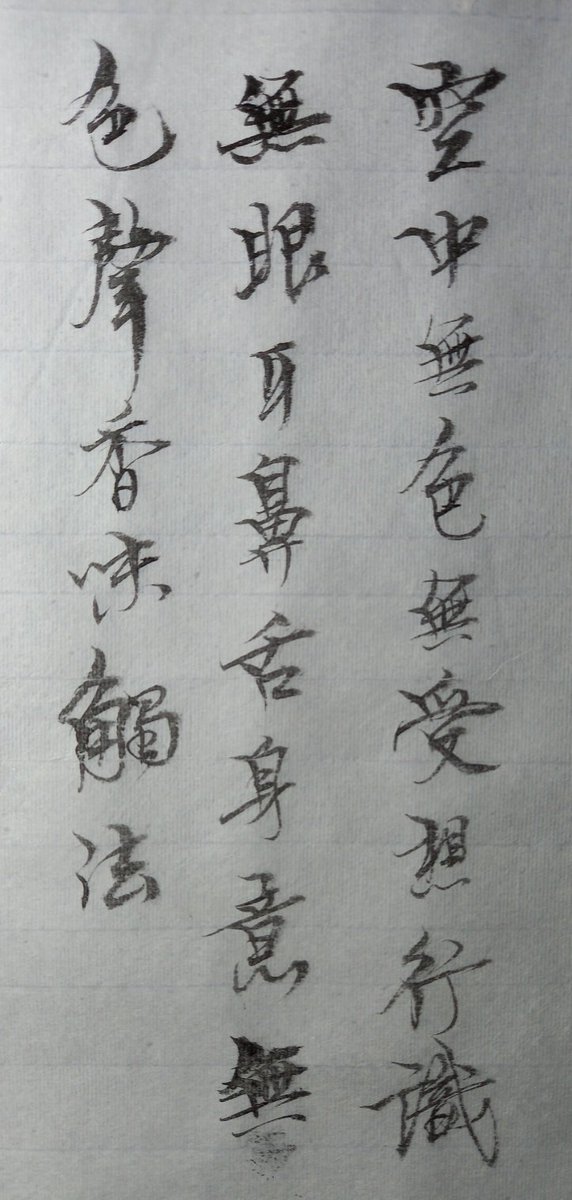 空中無色無受想行識
無眼耳鼻舌身意無
色聲香味觸法